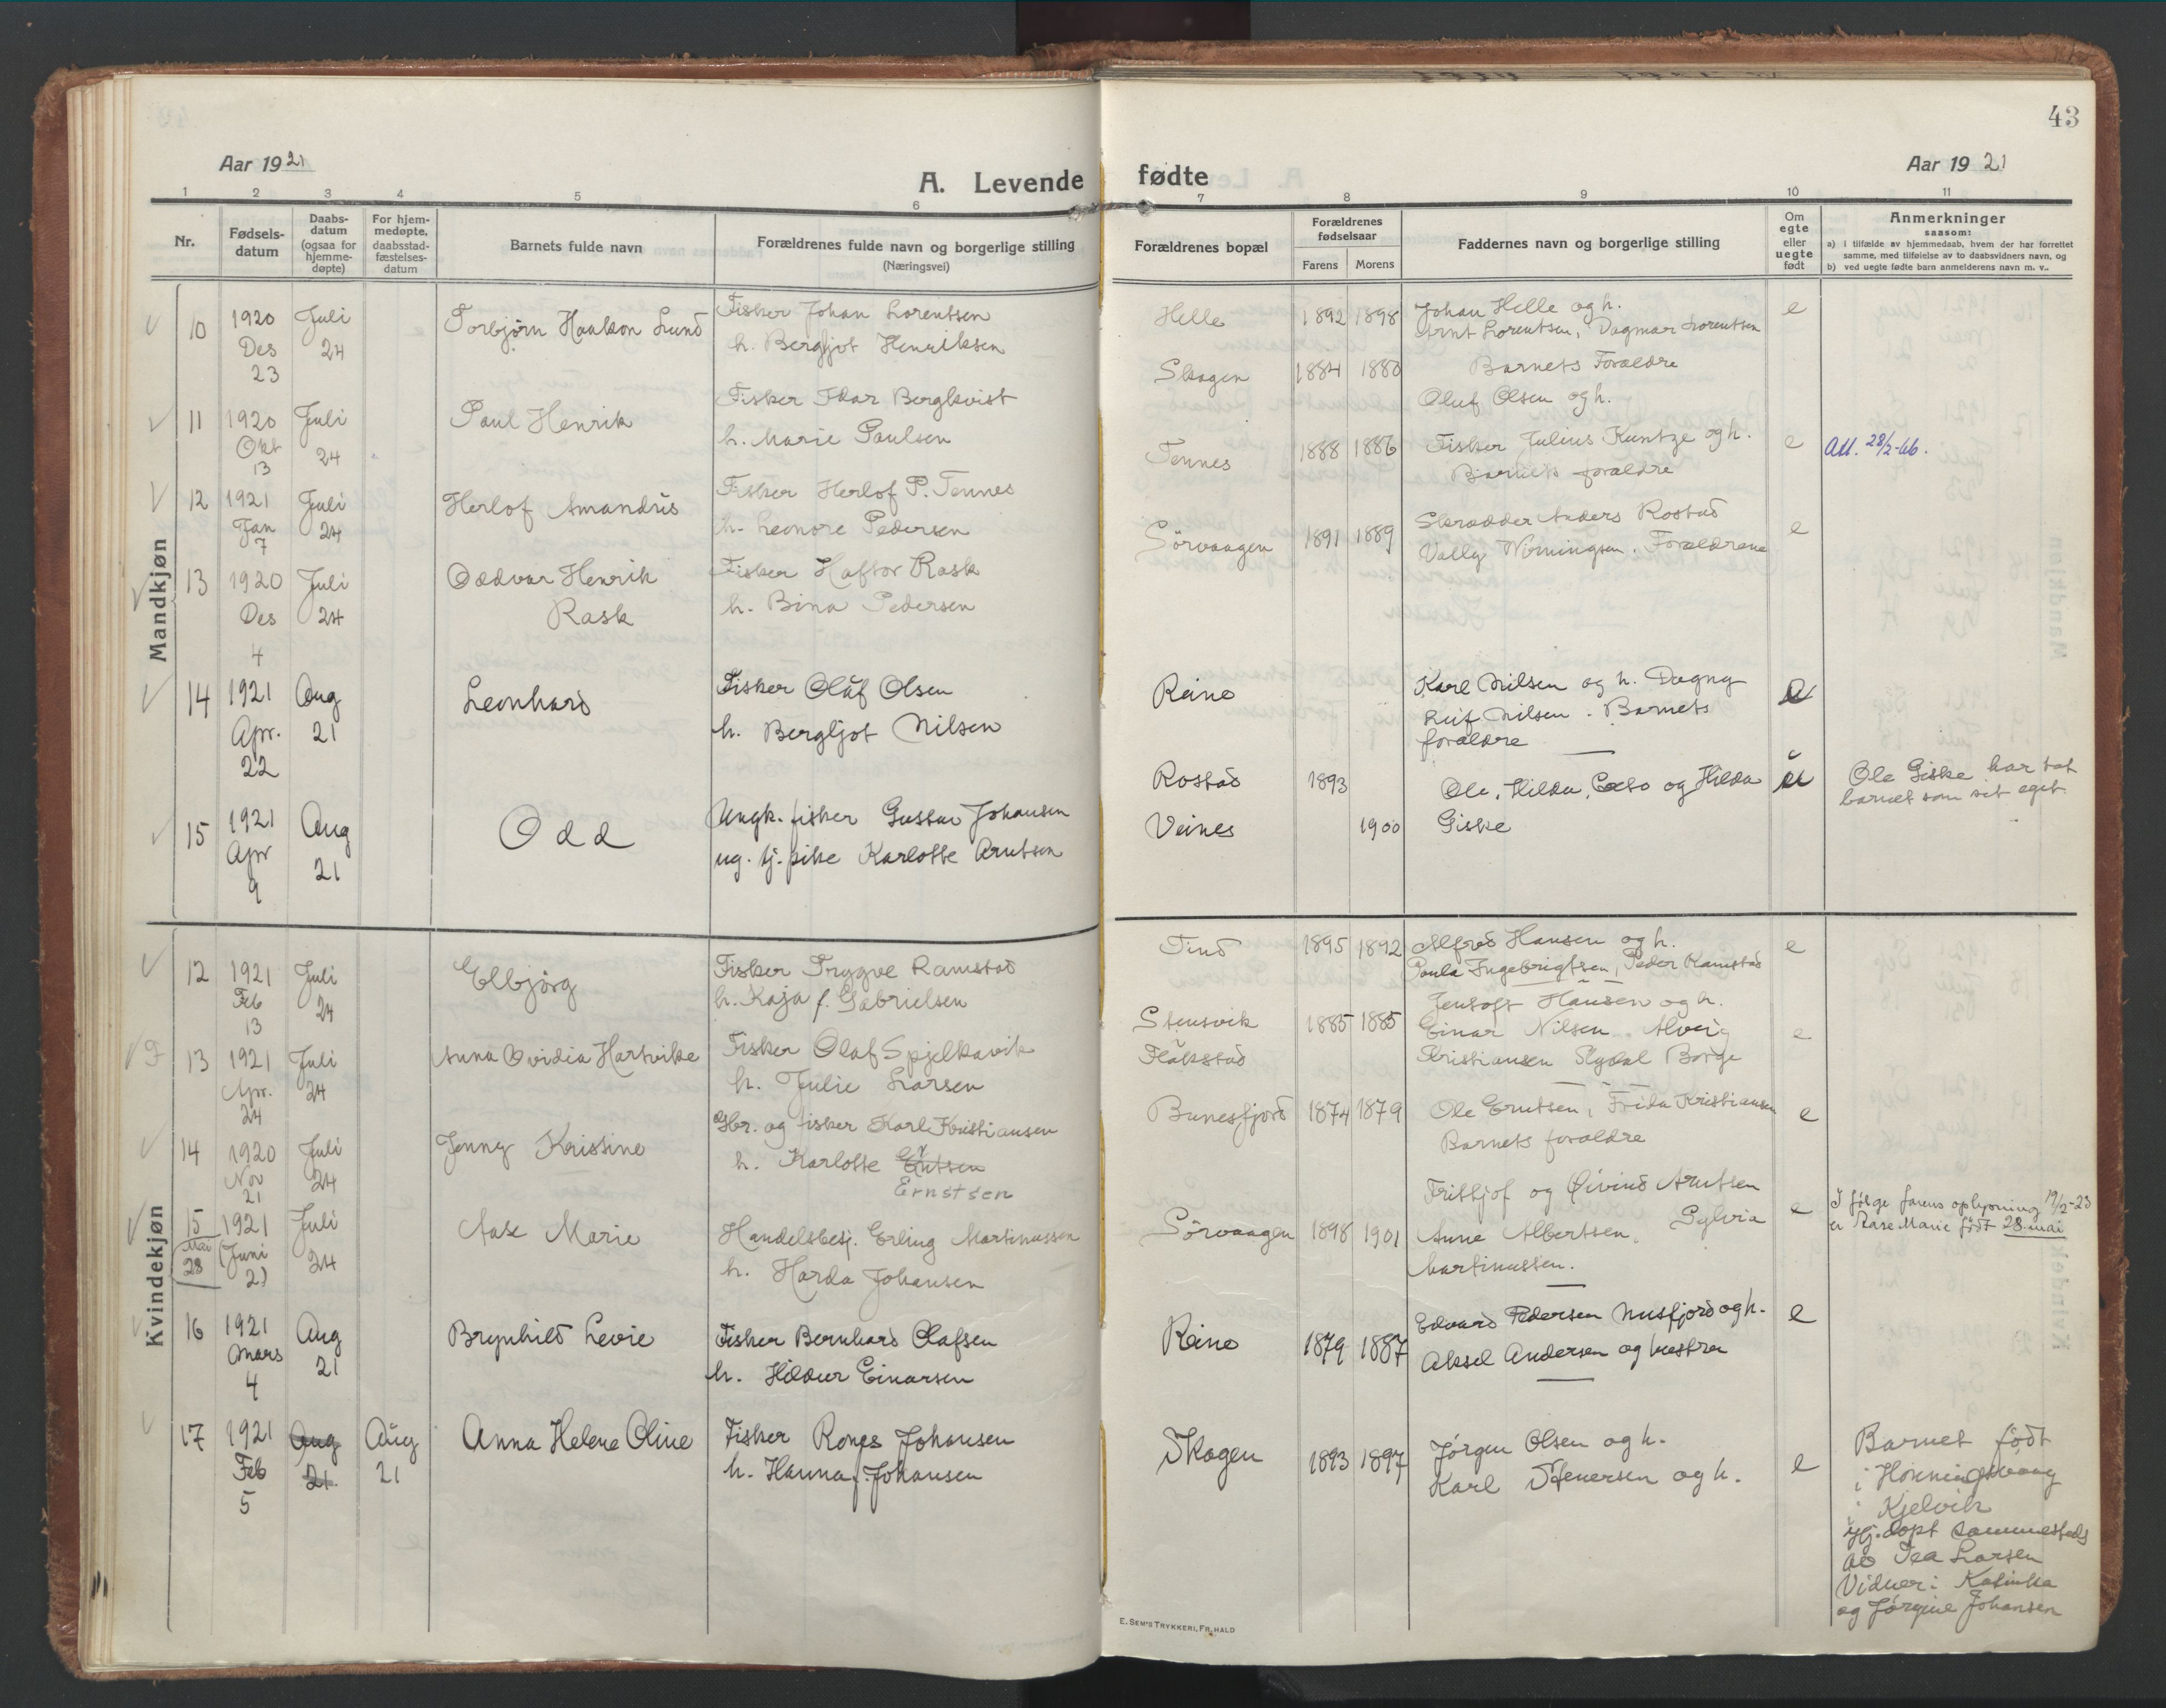 43
Aar 1921
A. Levende fødte
Aar 1921
1 2 3 4 5 6 7 8 9 10 11
Nr.
Fødsels-
datum
Daabs-
datum
(ogsaa for
hjemme-
døpte)
For hjem-
medøpte,
daabsstad-
fæstelses-
datum
Barnets fulde navn
Forældrenes fulde navn og borgerlige stilling
(Næringsvei)
Forældrenes bopæl
Forældrenes
fødselsaar
Farens Morens
Faddernes navn og borgerlige stilling
Om
egte
eller
uegte
født
Anmerkninger
saasom:
a) i tilfælde av hjemmedaab, hvem der har forrettet
samme, med tilføielse av to daabsvidners navn, og
b) ved uegte fødte barn anmelderens navn m. v..
Mandkjøn
10 1920 Des 23 Juli 24 Torbjørn Haakon Lund
Fisker Johan Lorentsen
h. Bergljot Henriksen
Helle 1892 1898
Johan Helle og h.
Arnt Lorentsen, Dagmar Lorentsen
e
11 1920 Okt 13 Juli 24 Paul Henrik
Fisker Idar Bergkvist
h. Marie Paulsen
Skagen 1884 1880
Barnets Forældre
Oluf Olsen og h.
12 1921 Jan 7 Juli 24 Herlof Amandus
Fisker Herlof P. Tennes
h. Leonore Pedersen
Tennes 1888 1886
Fisker Julius Kuntze og h.
Barnets forældre
e
Att. 28/2-46.
13 1920 Des 4 Juli 24 Oddvar Henrik
Rask
Fisker Haftor Rask
h. Bina Pedersen
Sörvaagen 1891 1889
Skrædder Anders Rostad
Vally . Forældrene
e
14 1921 Apr. 22 Aug 21 Leonhard
Fisker Olaf Olsen
h. Bergljot Nilsen
Reine
Karl Nilsen og h. Dagny
Leif Nilsen. Barnets
forældre
e
15 1921 Apr 9 Aug 21 Odd
Ungk. fisker Gustav Johansen
ug. tj. pike Karlotte Arntsen
Rostad 1893
Veines 1900
Ole, Hilda, og Hilda
Giske
u
Ole Giske har tat
barnet som sit eget.
Kvindekjøn
12 1921 Feb 13 Juli 24 Elbjörg
Fisker Trygve Ramstad
h. Kaja f. Gabrielsen
Tind 1895 1892
Alfred Hansen og h.
Paula Ingebrigtsen, Peder Ramstad
e
13 1921 Apr. 24 Juli 24 Anna Ovidia Hartvike
Fisker Olaf Spjelkavik
h. Julie Larsen
Stensvik 1885 1885
Flakstad
Jentoft Hansen og h.
Einar Nilsen. Alveig
Kristiansen Borge
e
14 1920 Nov 21 Juli 24 Jenny Kristine
Gbr. og fisker Karl Kristiansen
h. Karlotte
Ernstsen
Bunesfjord 1874 1879
Ole Erntsen, Frida Kristiansen
Barnets forældre
e
15 1921 (Juni 2) Juli 24 Aase Marie
Mai
28
Handelsbesj. Erling Martinussen
h. Harda Johansen
Sörvaagen 1898 1901
Fritjof og Øivind Arntsen
Anne Albertsen. Sylvia
Martinussen.
e
I følge farens oplysning 19/2-23
er Aase Marie født 28 mai
16 1921 Mars 4 Aug 21 Brynhild Levie
Fisker Bernhard Olafsen
h. Hildur Einarsen
Reine 1879 1887
Edvard Pedersen Nusfjord og h.
Aksel Andersen og hustru
e
17 1921 Feb 5 Aug 21. Aug 21 Anna Helene Oline
Fisker Johansen
h. Hanna f. Johansen
Skagen 1893 1897
Jörgen Olsen og h.
Karl Stenersen og h.
e
Barnet född
i Honningsvaag
i Kjelvik
Hj. döpt sammesteds
av Tea Larsen
Vidner: Katinka
og Jørgine Johansen
E. SEM'S TRYKKERI, FR.HALD